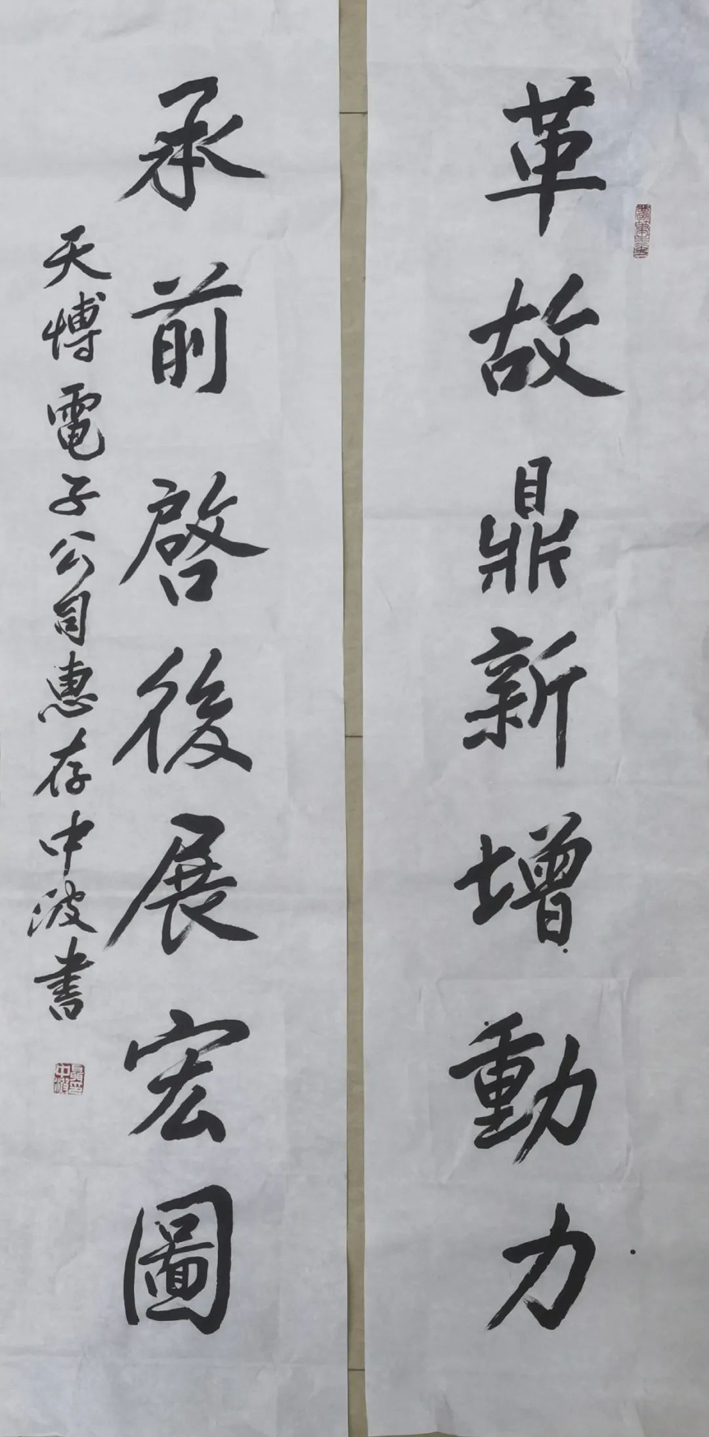 革故鼎新增動力
承前啓後展宏圖
天博電子公司惠存中波书